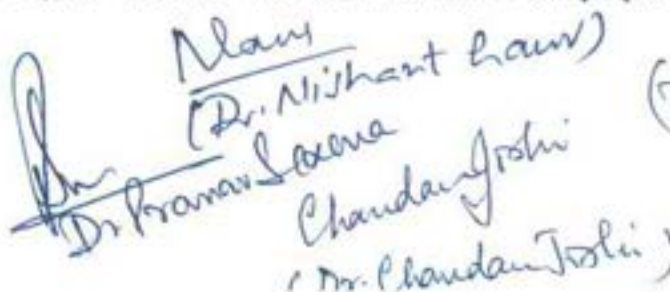 (Dr. Nishant
Dr Pranav Saxena
Chandan Joshi
(Dr. Chandan Joshi)